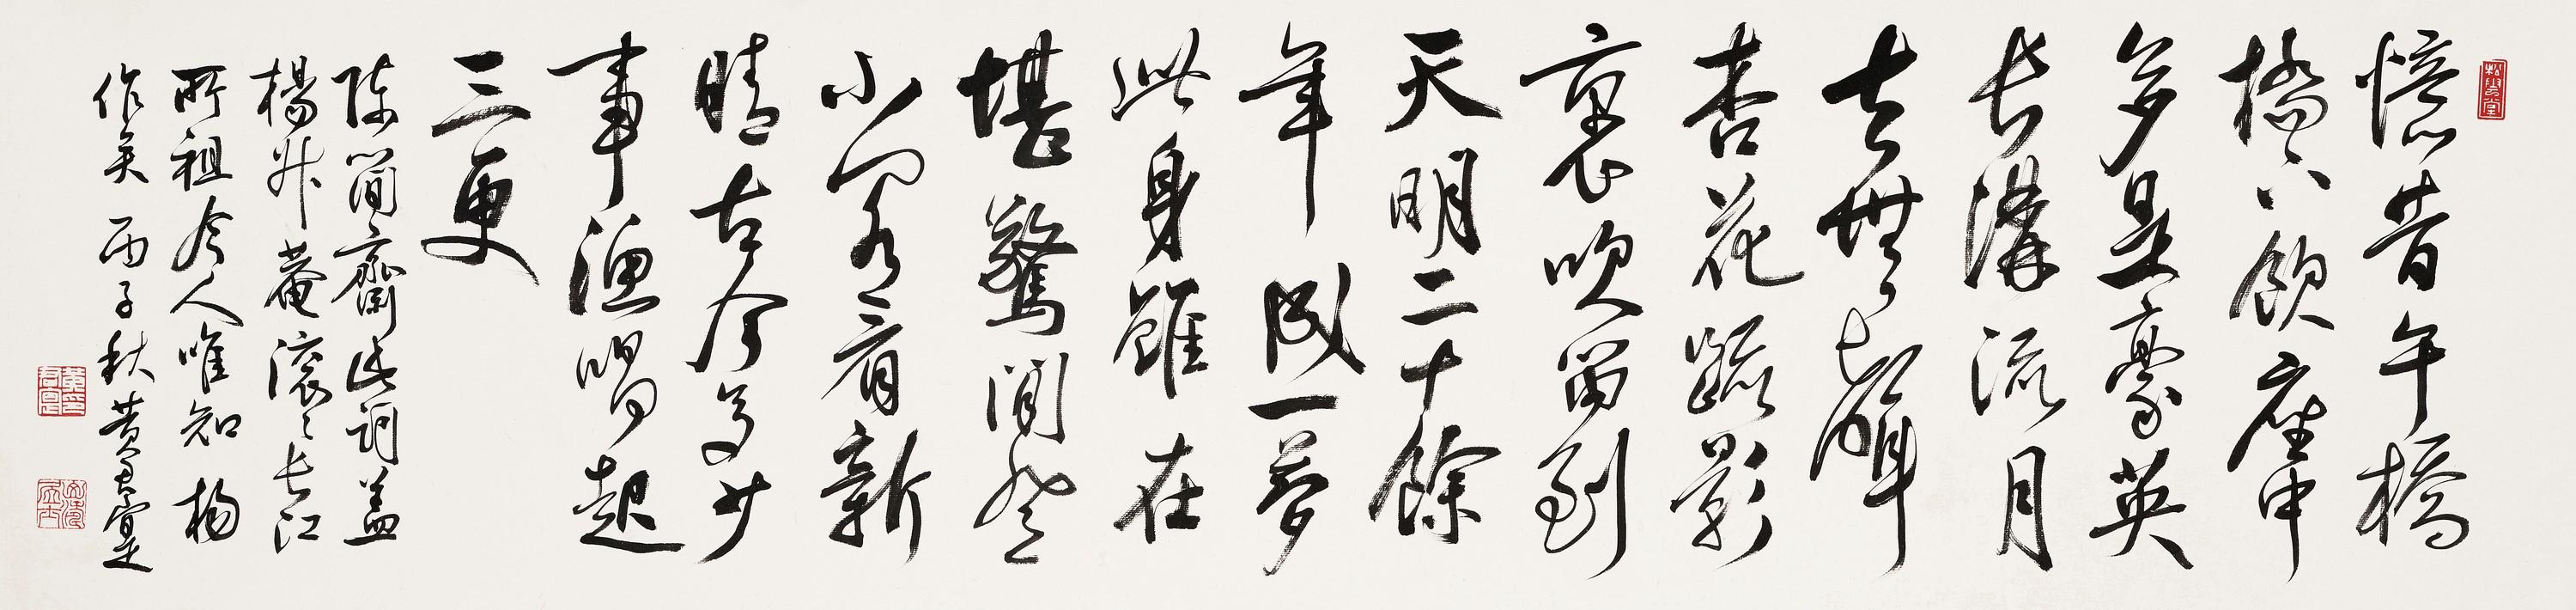 憶昔午橋
橋下飲座中
多是豪英
長溝流月
去無聲
杏花疏影
裏吹笛到
天明二十餘
年成一夢
此身雖在
堪驚閒登
小閣看新
晴古今多少
事漁唱起
三更
陳簡齋此詞蓋
楊升菴滾〻長江
所祖今人唯知楊
作矣 丙子秋黃君寔